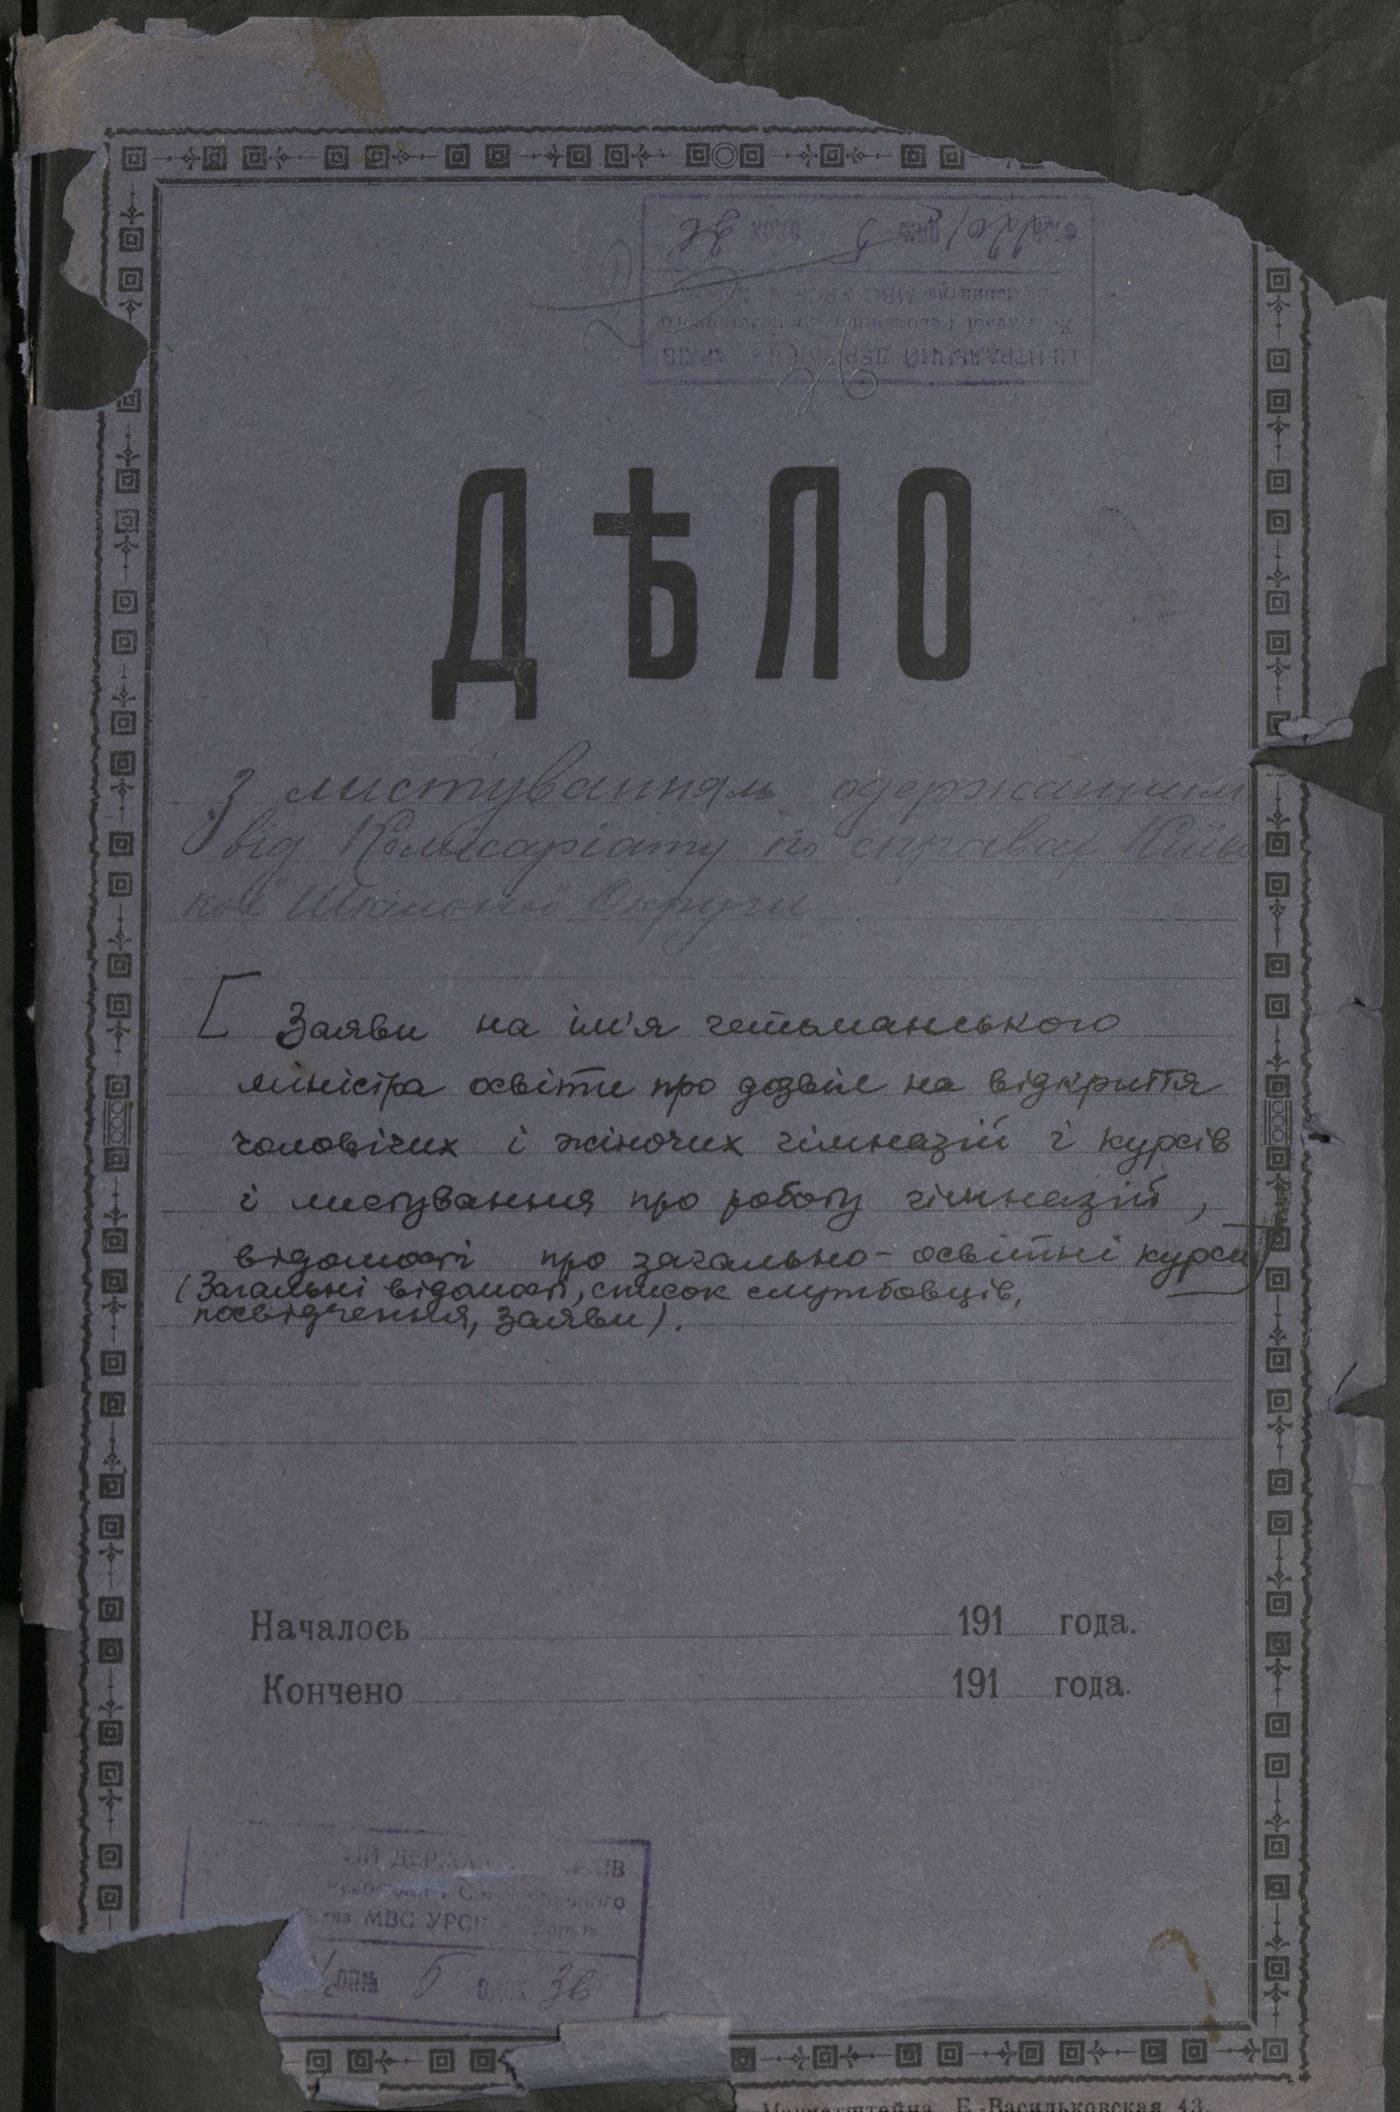 ЦЕНТРАЛЬНИЙ ДЕРЖ АРХІВ
МВС УРСР
ДѢЛО
З листуванням одержанним
від Комісаріату по справах Київс
кої Шкільної Округи
[ Заяви на ім'я гетьманського
міністра освіти про дозвіл на відкриття
чоловічих і жіночих гімназій і курсів
і листування про роботу гімназій,
відомості про загально-освітні курси]
(Загальні відомості, список службовців,
посвідчення, заяви).
Началось 191 года.
Кончено 191 года.
ИЙ ДЕРЖА ІВ
МВС УРСР
опи 5 одох 36
Е.-Васильковская 43.